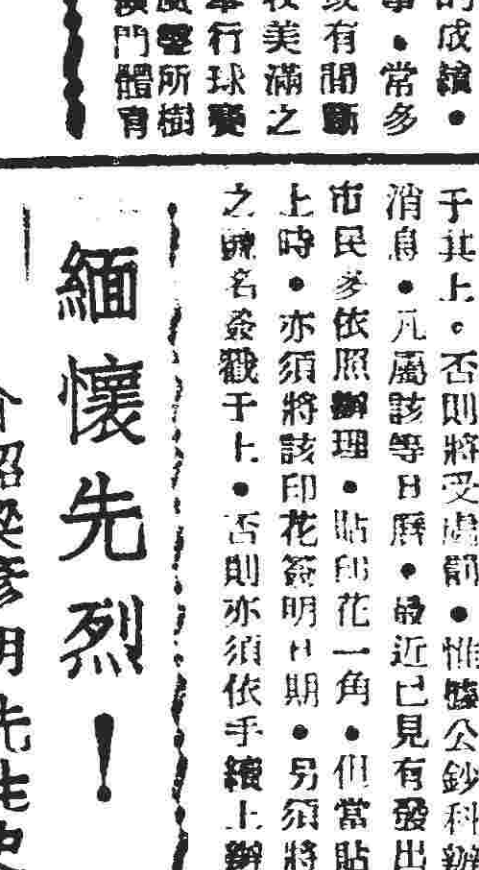 的成績●
事●常多
或有間斷
收美滿之
舉行球賽
風聲所樹
澳門體育
于其上。否則將受處罰●惟據公鈔科辦
消息●凡屬該等日曆●最近已見有發出
市民多依照辦理●貼印花一角●但當貼
上時●亦須將該印花簽明日期●另須將
之號名簽戳于上●否則亦須依手續上辦
緬懷先烈！
介紹梁彥明先生史